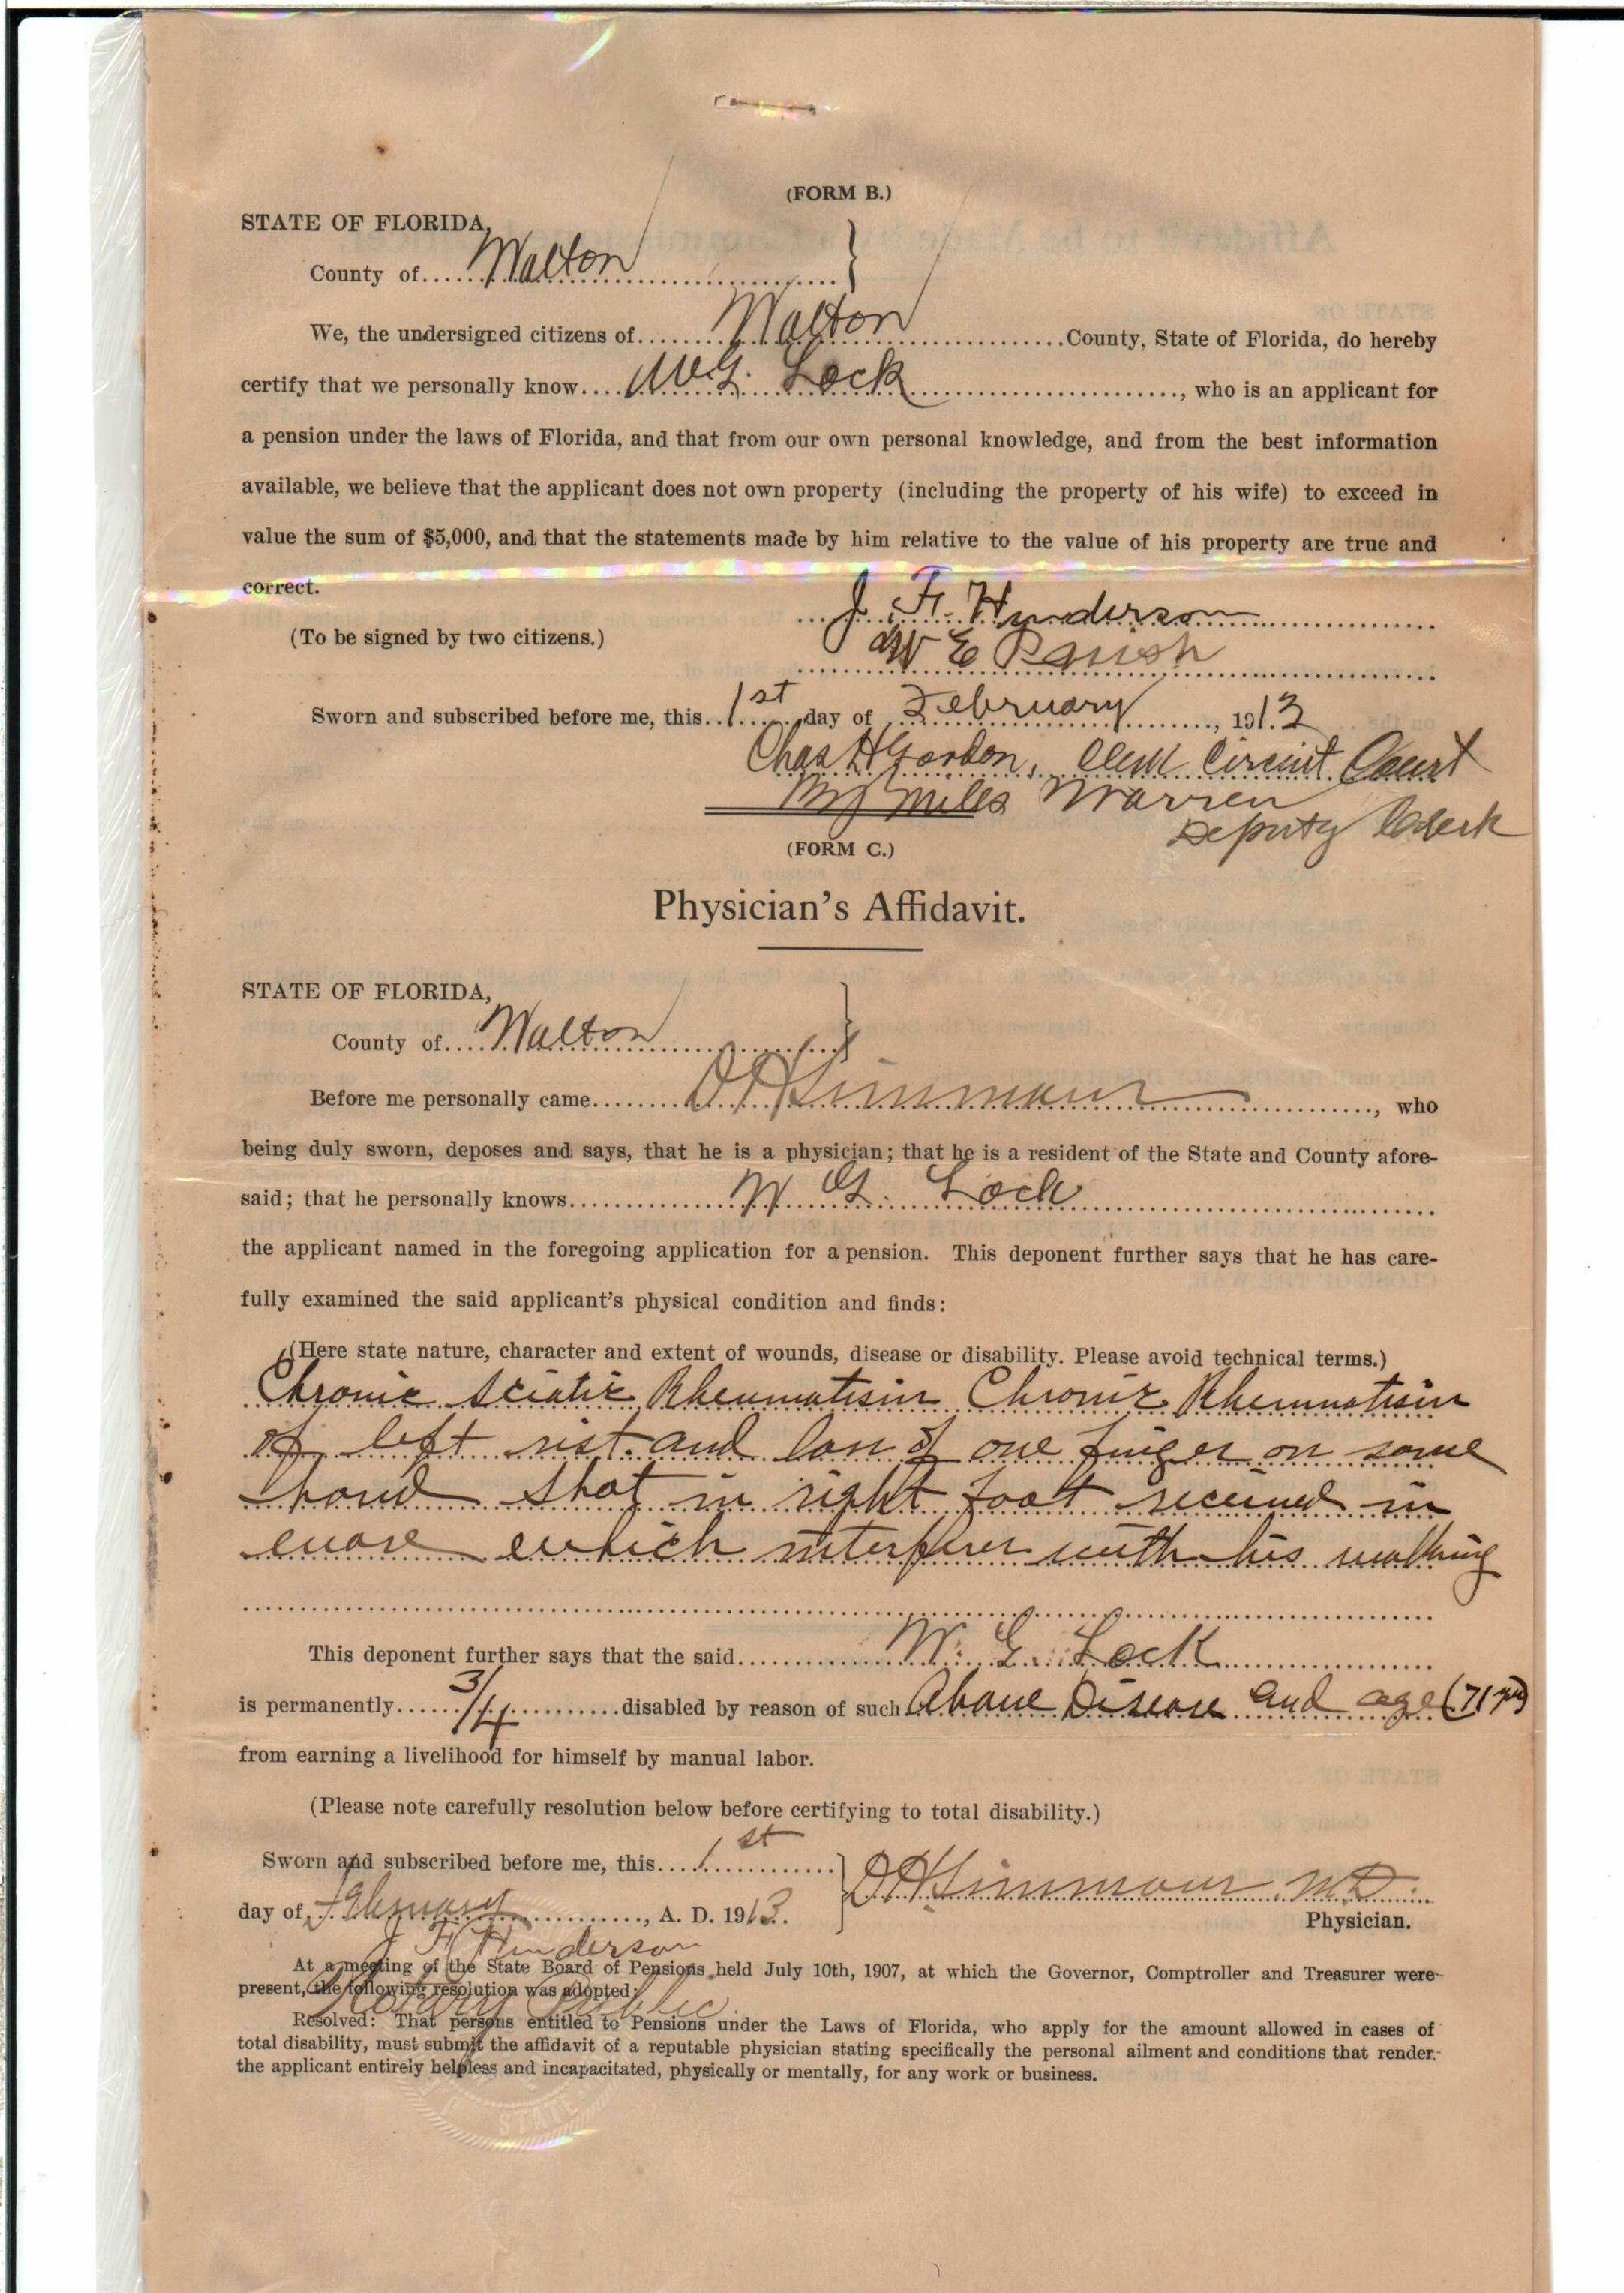 (FORM B.)
STATE OF FLORIDA,
County of Walton
We, the undersigned citizens of Walton County, State of Florida, do hereby
certify that we personally know W. G. Lock, who is an applicant for
a pension under the laws of Florida, and that from our own personal knowledge, and from the best information
available, we believe that the applicant does not own property (including the property of his wife) to exceed in
value the sum of $5,000, and that the statements made by him relative to the value of his property are true and
correct.
J. F. Henderson
(To be signed by two citizens.)
W E Parish
Sworn and subscribed before me, this 1st day of February, 1913
Chas H Gordon, Clerk Circuit Court
By Miles Warren
Deputy Clerk
(FORM C.)
Physician's Affidavit.
STATE OF FLORIDA,
County of Walton
Before me personally came D H Simmons, who
being duly sworn, deposes and says, that he is a physician; that he is a resident of the State and County afore-
said; that he personally knows W G. Lock
the applicant named in the foregoing application for a pension. This deponent further says that he has care-
fully examined the said applicant's physical condition and finds:
(Here state nature, character and extent of wounds, disease or disability. Please avoid technical terms.)
Chronic Sciatic Rheumatism Chronic Rheumatism
of left rist and loss of one finger on same
hand Shot in right foot received in
which interferes with his walking
This deponent further says that the said W. G. Lock
is permanently 3/4 disabled by reason of such Above Disease and age (71 yrs)
from earning a livelihood for himself by manual labor.
(Please note carefully resolution below before certifying to total disability.)
Sworn and subscribed before me, this 1st
D H Simmons M.D.
day of February, A. D. 1913.
Physician.
J F Henderson
At a meeting of the State Board of Pensions held July 10th, 1907, at which the Governor, Comptroller and Treasurer were
present, the following resolution was adopted:
Notary Public
Resolved: That persons entitled to Pensions under the Laws of Florida, who apply for the amount allowed in cases of
total disability, must submit the affidavit of a reputable physician stating specifically the personal ailment and conditions that render
the applicant entirely helpless and incapacitated, physically or mentally, for any work or business.
STATE